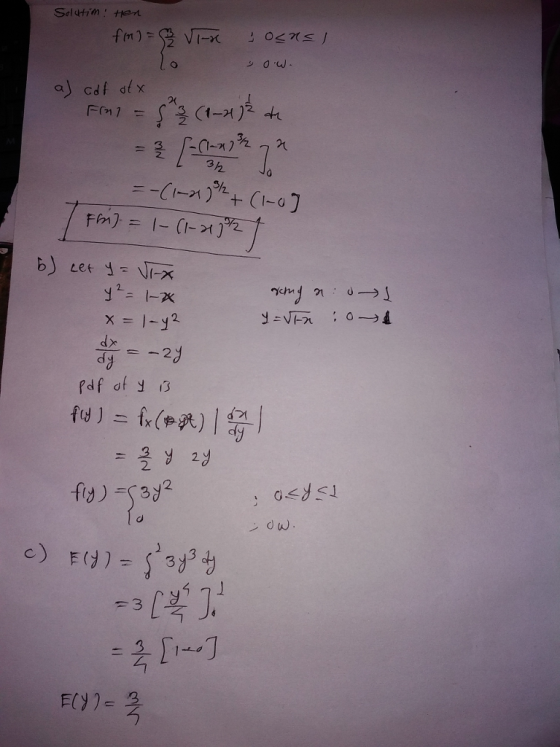 Solution:
f(x) = { 3/2 √1-x ; 0≤x≤1
0 ; o.w.
a) cdf of x
F(x) = ∫₀ˣ 3/2 (1-x)^1/2 dx
= 3/2 [ -(1-x)^3/2 / 3/2 ]₀ˣ
= -(1-x)^3/2 + (1-0]
F(x) = 1-(1-x)^3/2
b) Let y = √1-x
y² = 1-x
x : 0→1
x = 1-y²
y=√1-x : 0→1
dx/dy = -2y
pdf of y is
f(y) = fx( ) |dx/dy|
= 3/2 y 2y
f(y) = { 3y² ; 0≤y≤1
0 ; o.w.
c) E(y) = ∫₀¹ 3y³ dy
= 3 [ y⁴/4 ]₀¹
= 3/4 [1-0]
E(y) = 3/4